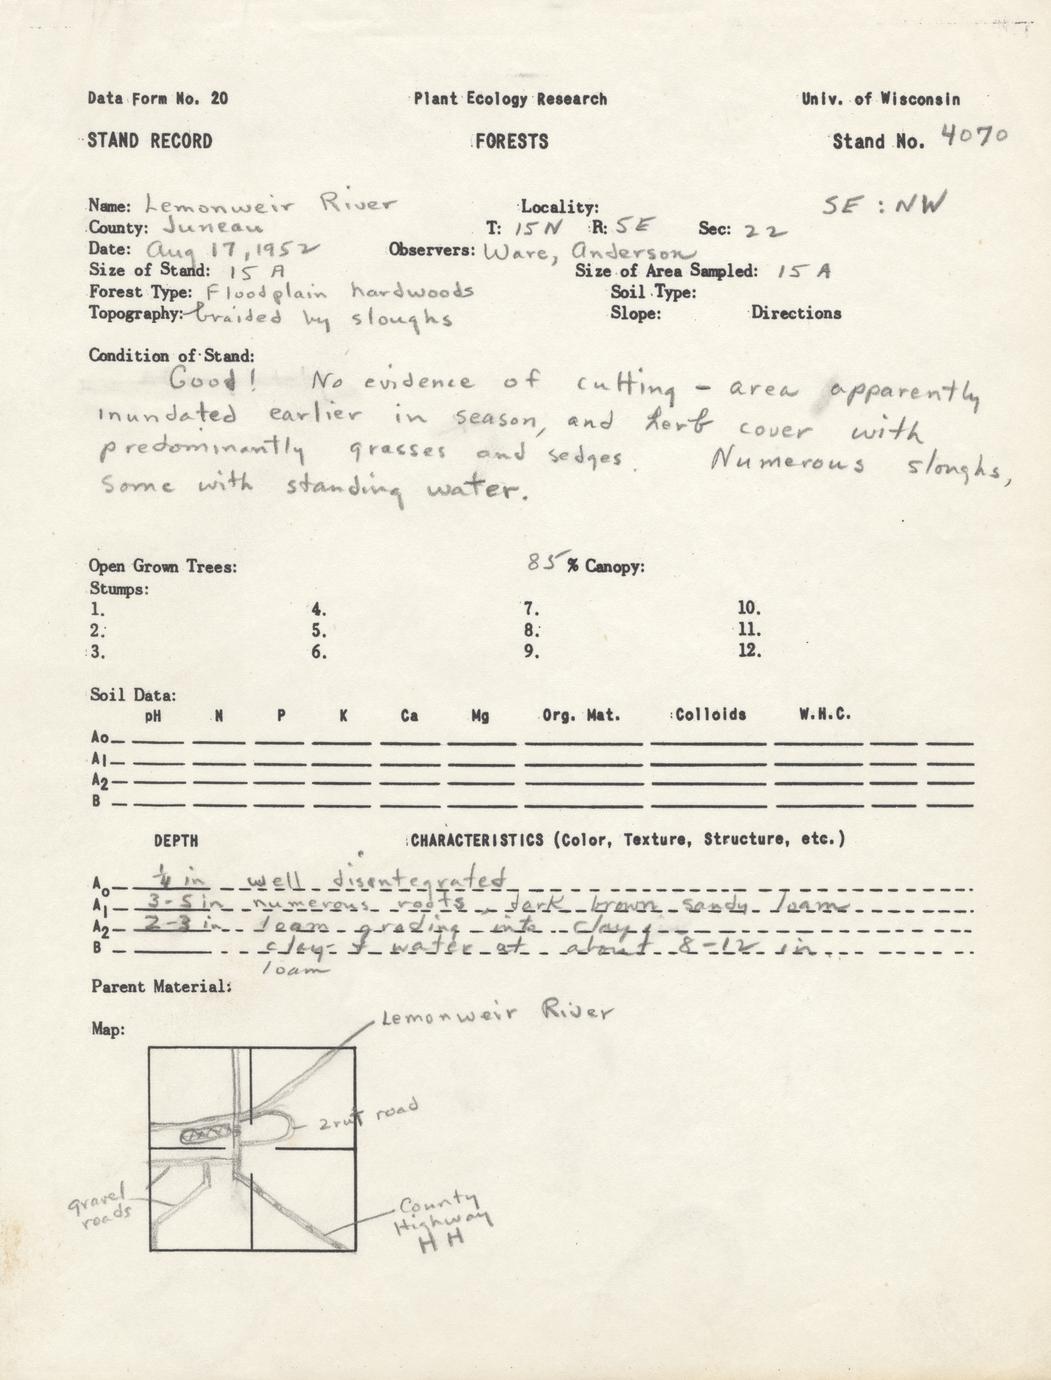 Data Form No. 20 Plant Ecology Research Univ. of Wisconsin
STAND RECORD FORESTS Stand No. 4070
Name: Lemonweir River Locality: SE : NW
County: Juneau T: 15N R: 5E Sec: 22
Date: Aug 17, 1952 Observers: Ware, Anderson
Size of Stand: 15 A Size of Area Sampled: 15 A
Forest Type: Floodplain hardwoods Soil Type:
Topography: braided by sloughs Slope: Directions
Condition of Stand:
Good! No evidence of cutting - area apparently
inundated earlier in season, and herb cover with
predominantly grasses and sedges. Numerous sloughs,
some with standing water.
Open Grown Trees: 85 % Canopy:
Stumps:
1. 4. 7. 10.
2. 5. 8. 11.
3. 6. 9. 12.
Soil Data:
pH N P K Ca Mg Org. Mat. Colloids W.H.C.
Ao
A1
A2
B
DEPTH CHARACTERISTICS (Color, Texture, Structure, etc.)
Ao 1/4 in well disentegrated
A1 3-5 in numerous roots, dark brown sandy loam
A2 2-3 in loam grading into clay
B clay- & water at about 8-12 in.
loam
Parent Material:
Map:
Lemonweir River
2 rut road
gravel
roads
County
Highway
HH